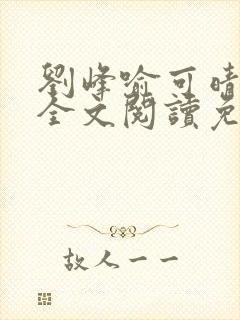 劉峰喻可晴
全文閱讀免
故人一一